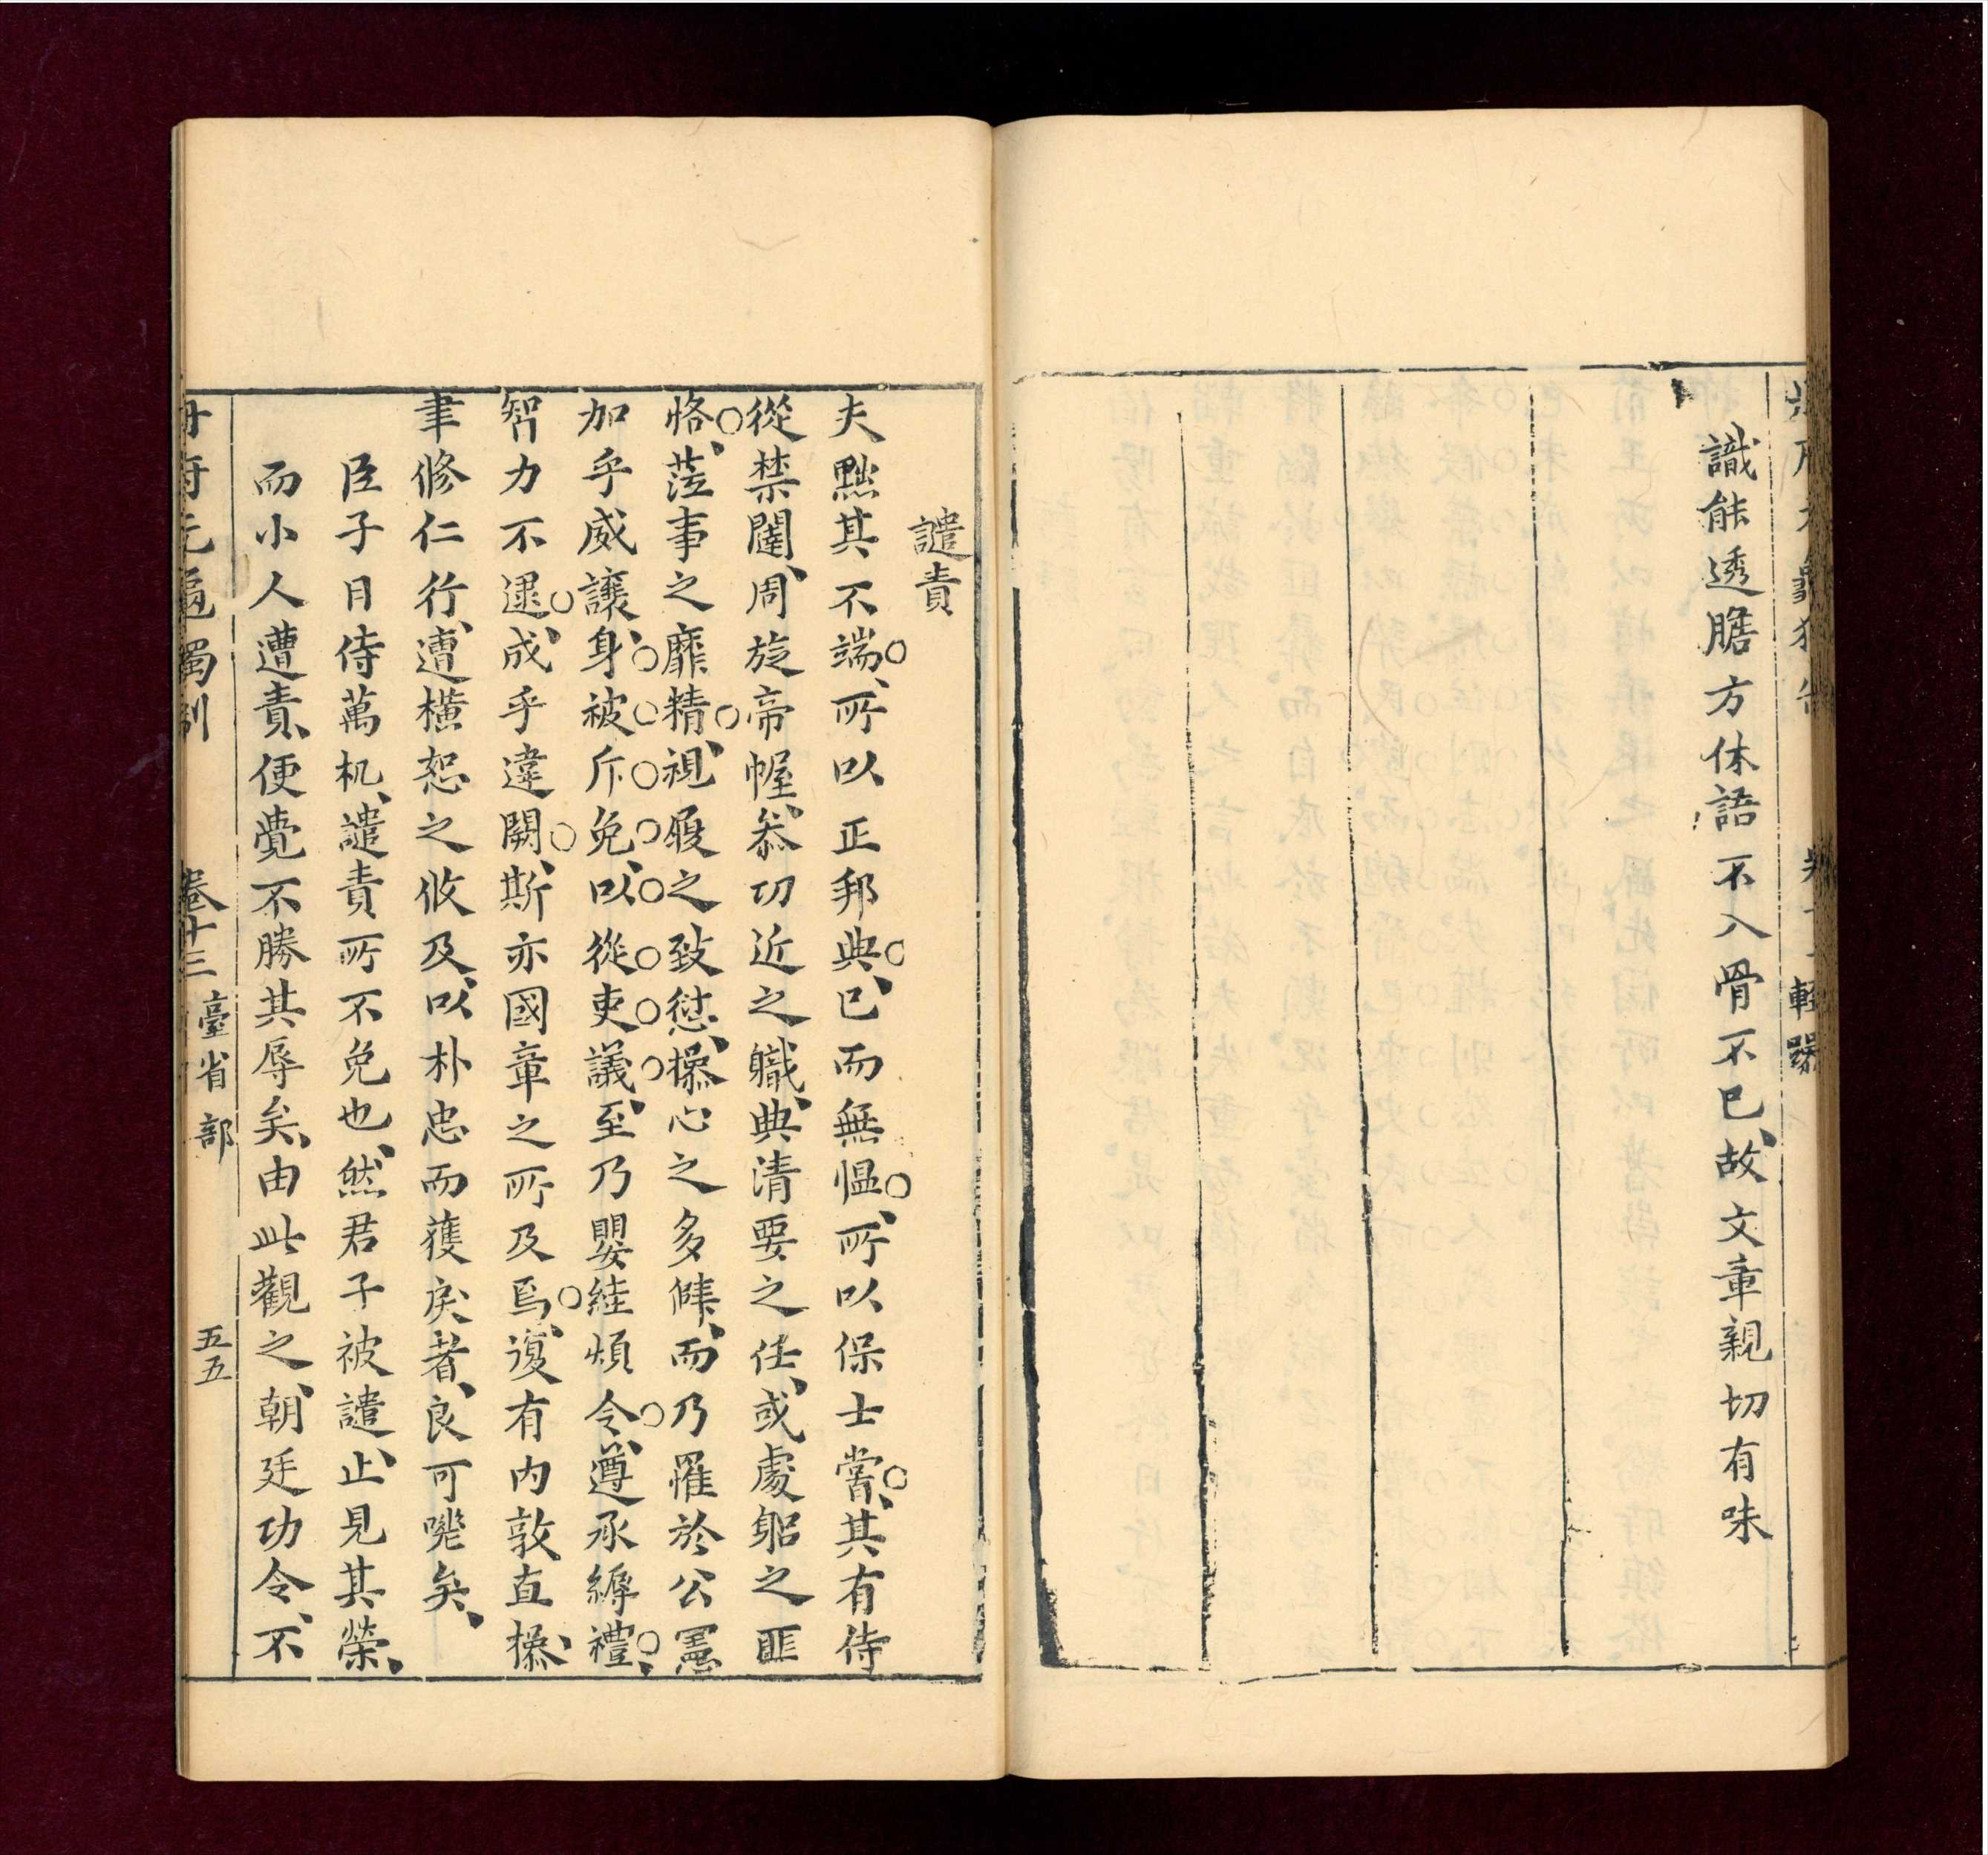 識能透膽方休語不入骨不已故文章親切有味
譴責
夫黜其不端所以正邦典已而無慍所以保士嘗其有侍
從禁闥周旋帝幄叅功近之職典清要之任或處躬之匪
恪蒞事之靡精視履之致愆操心之多僁而乃罹於公憲
加乎威讓身被斥免以從吏議至乃嬰絓煩令遵承縟禮
智力不逮成乎違闕斯亦國章之所及焉復有内敦直操
聿修仁行遭橫恕之攸及以朴忠而獲戾者良可嘅矣
臣子日侍萬机譴責所不免也然君子被譴止見其榮
而小人遭責便覺不勝其辱矣由此觀之朝廷功令不
冊府元龜獨制 卷十三 臺省部 五五